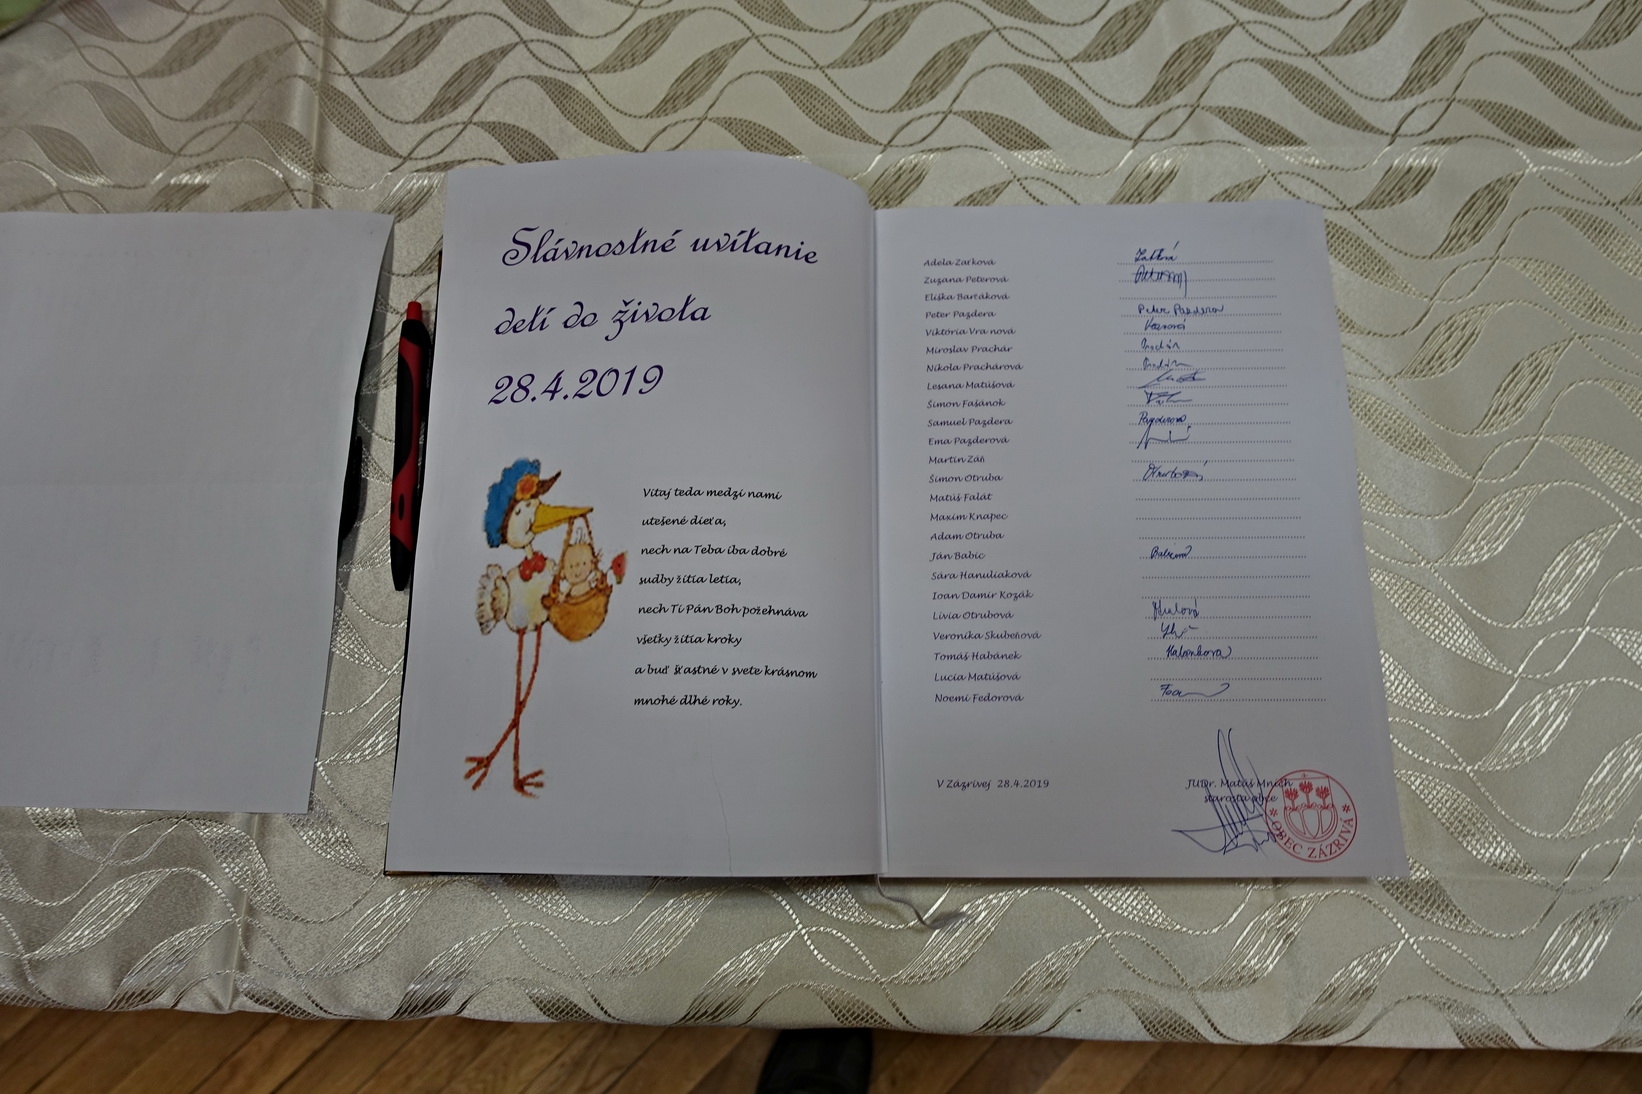 Slávnostné uvítanie
detí do života
28.4.2019
Vitaj teda medzi nami
utešené dieťa,
nech na Teba iba dobré
sudby žitia letia,
nech Ti Pán Boh požehnáva
všetky žitia kroky
a buď šťastné v svete krásnom
mnohé dlhé roky.
Adela Žarková
Zuzana Peterová
Eliška Bartáková
Peter Pazdera Peter Pazdera
Viktória Vra nová
Miroslav Prachár
Nikola Prachárová
Lesana Matúšová
Šimon Fašánok
Samuel Pazdera Pazderová
Ema Pazderová
Martin Záň
Šimon Otruba
Matúš Falát
Maxim Knapec
Adam Otruba
Ján Babic
Sára Hanuliaková
Ioan Damir Kozák
Lívia Otrubová
Veronika Skubeňová
Tomáš Habánek Habánková
Lucia Matúšová
Noemi Fedorová
V Zázrivej 28.4.2019
JUDr. Matúš Mnich
starosta obce
* OBEC ZÁZRIVÁ *